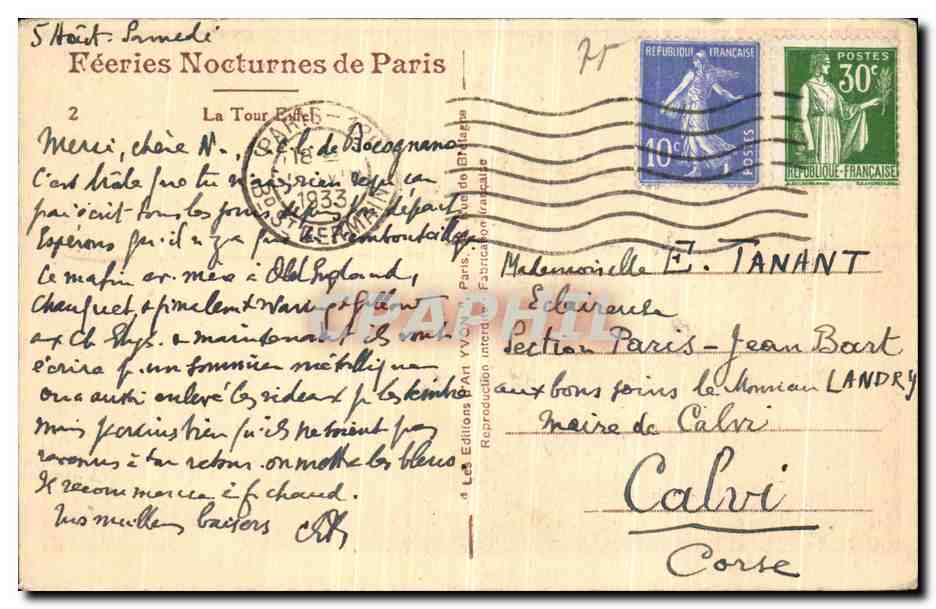 5 Août. Samedi
Féeries Nocturnes de Paris
2 La Tour Eiffel
Merci, chère N., c. p. de Bocognano
C'est drôle que tu n'aies rien reçu car
j'ai écrit tous les jours depuis le départ
Espérons qu'il n'y a pas d'embouteillage
Ce matin av. à Old England,
aux Ch. Elys. & maintenant ils vont
écrire p. un sommier métallique
on a aussi enlevé les rideaux p. les teindre
mais je crains bien qu'ils ne soient pas
revenus à ton retour. on mettra les bleus.
Il recommence à f. chaud.
Nos meilleurs baisers
PARIS
1933
ST GERMAIN
75
RÉPUBLIQUE FRANÇAISE
10c
POSTES
POSTES
30c
RÉPUBLIQUE-FRANÇAISE
Les Editions d'Art YVON, Paris, Rue de Bretagne
Reproduction interdite Fabrication française
CPAPHIL
Mademoiselle E. TANANT
Eclaireuse
Section Paris-Jean Bart
aux bons soins de Monsieur LANDRY
Maire de Calvi
Calvi
Corse